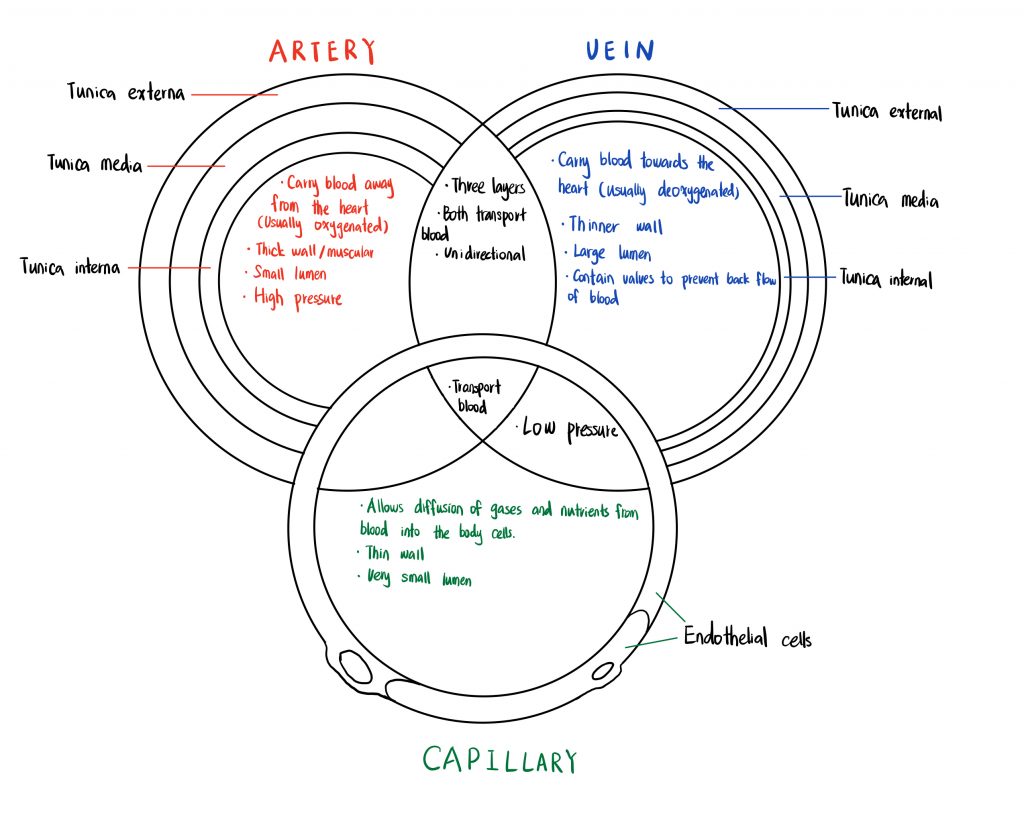 ARTERY
VEIN
Tunica externa
Tunica media
Tunica interna
· Carry blood away
from the heart
(Usually oxygenated)
· Thick wall/muscular
· Small lumen
· High pressure
· Three layers
· Both transport
blood
· Unidirectional
· Carry blood towards the
heart (usually deoxygenated)
· Thinner wall
· Large lumen
· Contain values to prevent back flow
of blood
Tunica external
Tunica media
Tunica internal
· Transport
blood
· Low pressure
· Allows diffusion of gases and nutrients from
blood into the body cells.
· Thin wall
· Very small lumen
Endothelial cells
CAPILLARY